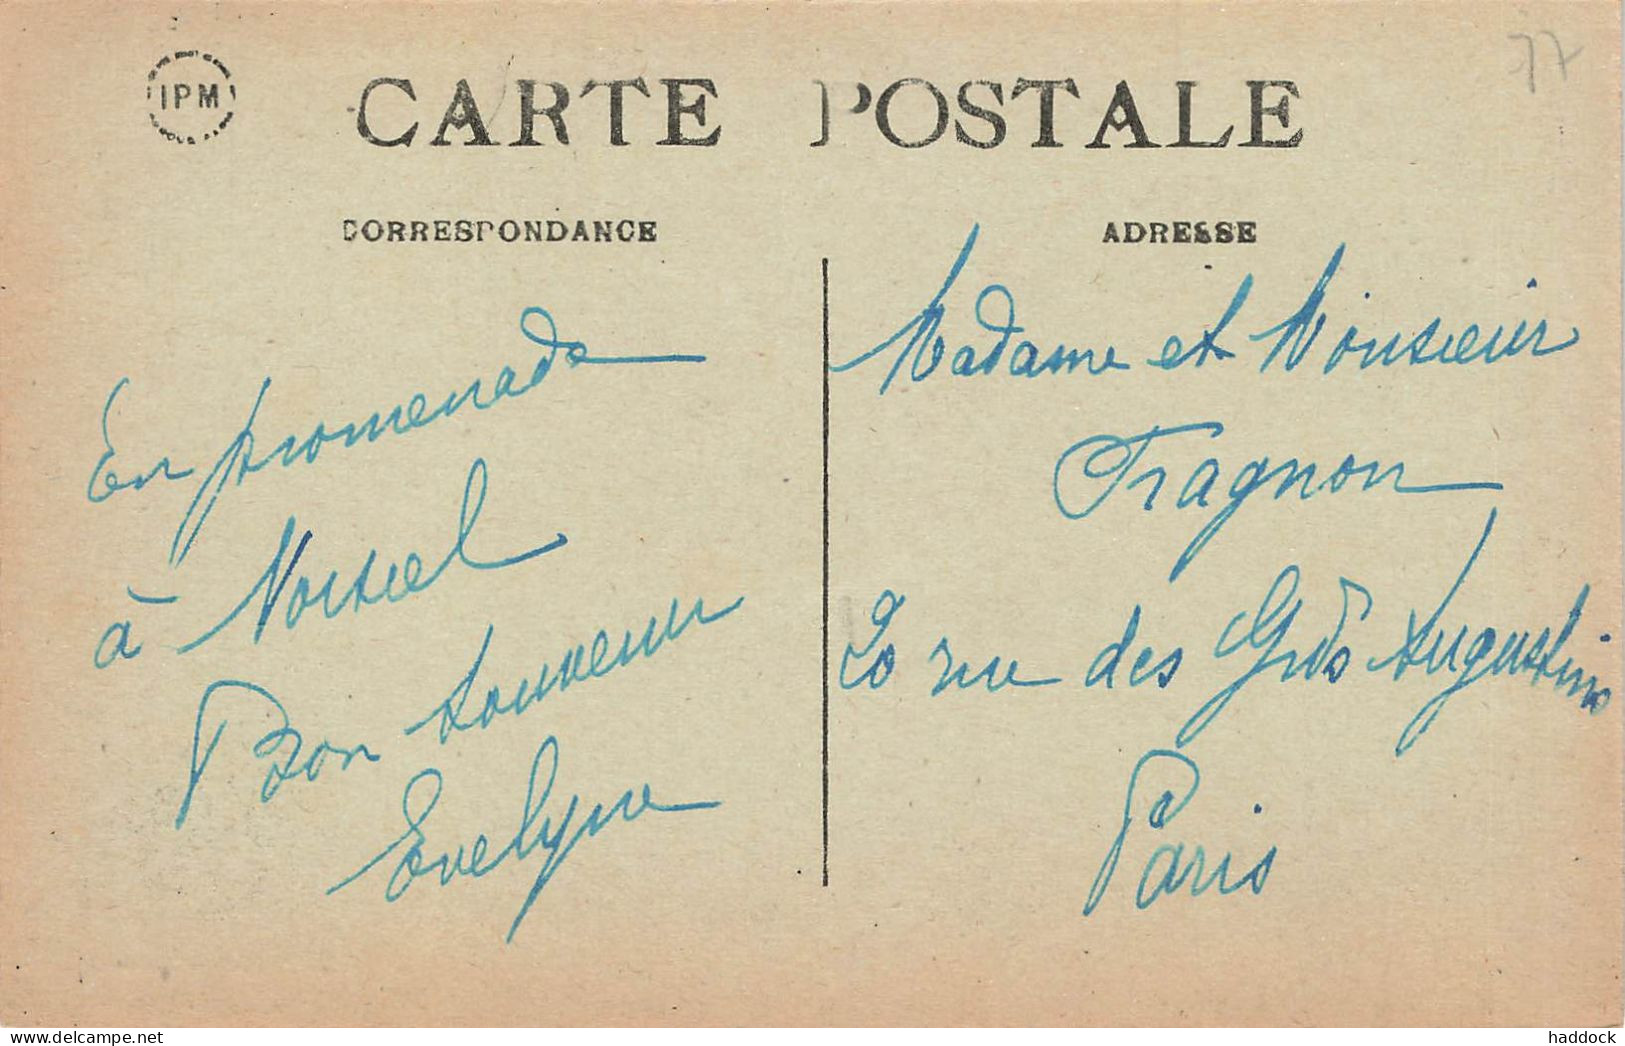 77
IPM
CARTE POSTALE
CORRESPONDANCE
ADRESSE
En promenade
à Noisiel
Bon souvenir
Evelyne
Madame et Monsieur
Fragnon
20 rue des Gds Augustins
Paris
haddock